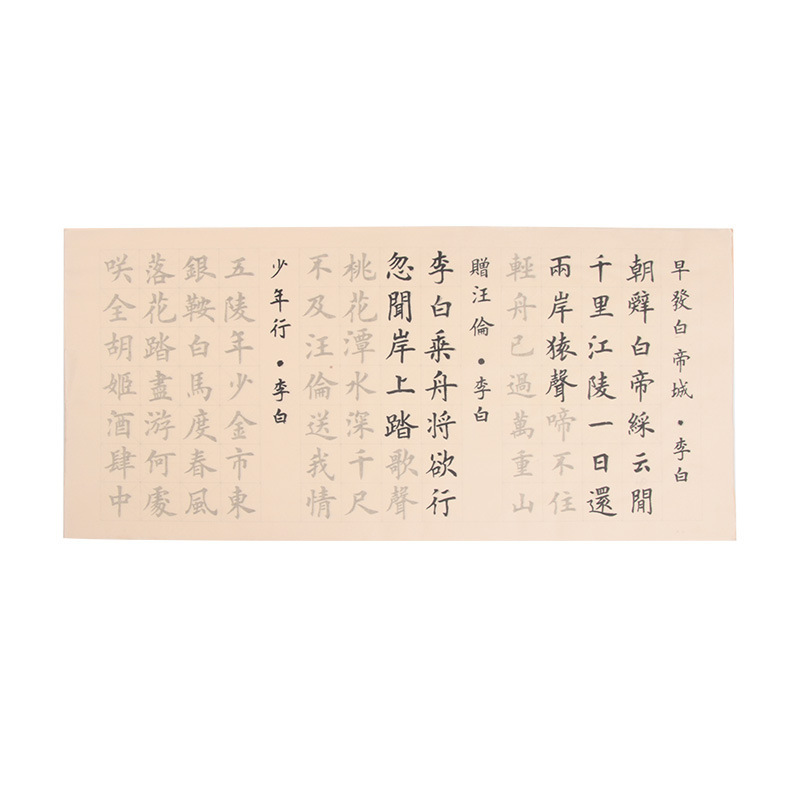 早發白帝城・李白
朝辭白帝綵云間
千里江陵一日還
兩岸猿聲啼不住
輕舟已過萬重山
贈汪倫・李白
李白乘舟将欲行
忽聞岸上踏歌聲
桃花潭水深千尺
不及汪倫送我情
少年行・李白
五陵年少金市東
銀鞍白馬度春風
落花踏盡游何處
咲全胡姬酒肆中